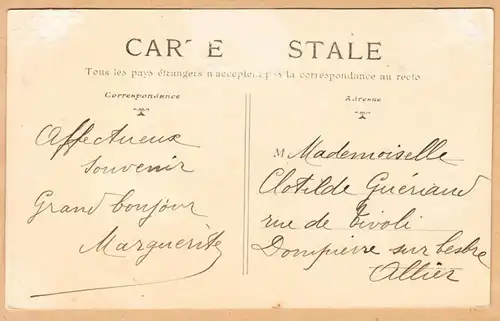 CARTE STALE
Tous les pays étrangers n'acceptent pas la correspondance au recto
Correspondance
Adresse
Affectueux
Souvenir
Grand bonjour
Marguerite
M Mademoiselle
Clotilde Guériaud
rue de Tivoli
Dompierre sur Besbre
Allier